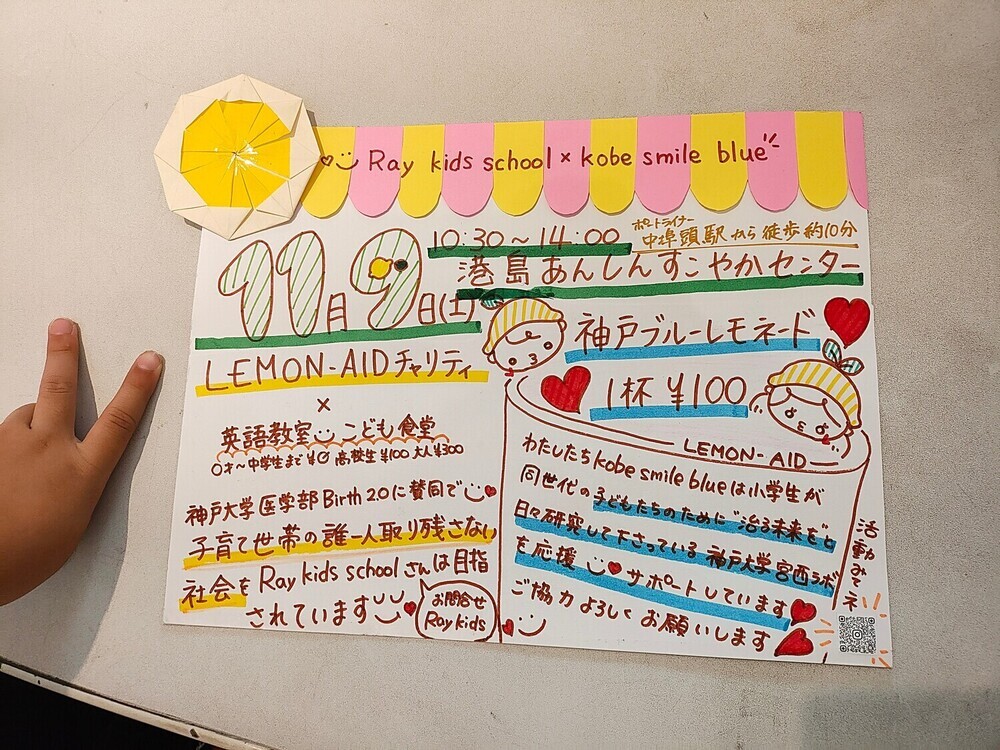 Ray kids school × kobe smile blue
11月9日(土)
10:30〜14:00
ポートライナー
中埠頭駅から徒歩約10分
港島あんしんすこやかセンター
LEMON-AIDチャリティ
×
英語教室 こども食堂
0才〜中学生まで¥0 高校生¥100 大人¥300
神戸大学医学部Birth20に賛同で
子育て世帯の誰一人取り残さない
社会をRay kids schoolさんは目指
されています
お問合せ
Ray kids
神戸ブルーレモネード
1杯 ¥100
LEMON-AID
わたしたちkobe smile blueは小学生が
同世代の子どもたちのために"治る未来を"と
日々研究して下さっている神戸大学宮西ラボ
を応援 サポートしています
ご協力よろしくお願いします
活動みてネ